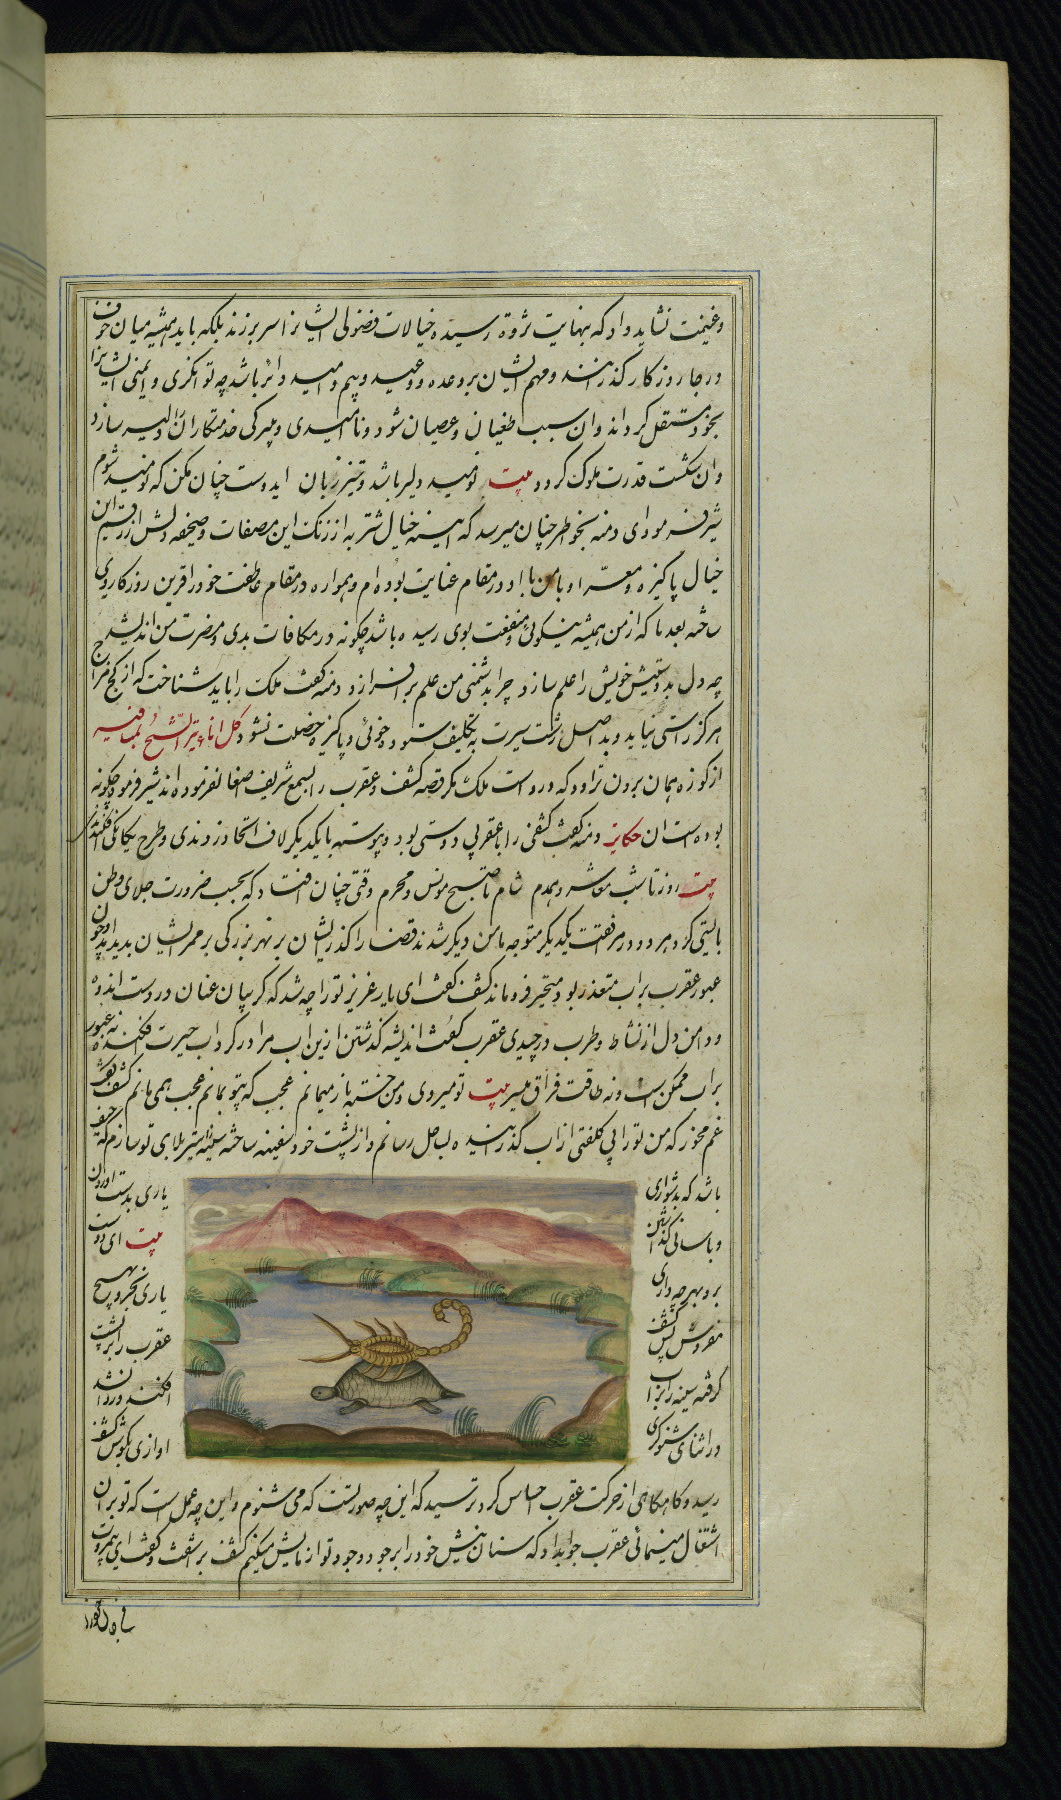 و غنیمت نشاید داد که بنهایت ثروة رسیده خیالات فضولی ایشانرا سر برزند بلکه باید همیشه میان خوف
و رجا روزکار کذرانند و مهم ایشان بر وعده و وعید و بیم و امید دائر باشد چه توانکری و ایمنی ایشانرا
بخود مستقل کرداند و ان سبب طغیان و عصیان شود و نا امیدی و خدمتکارانرا دلیر سازد
و ان شکست قدرت ملوک کردد بیت نومید دلیر باشد و تیز زبان ایدوست چنان مکن که نومید شوم
شیر فرمود ای دمنه بخواطر چنان میرسد که اینه خیال شتربه از زنک این مصفات و صحیفه دلش از رقم این
خیال پاکیزه و معرّا و با من با او در مقام عنایت بوده ام و همواره در مقام عاطفت خود را قرین روزکار وی
ساخته بعد ما که از من همیشه نیکوئی و منفعت بوی رسیده باشد چکونه در مکافات بدی و مضرت من اندیشد
چه دل بدوستیش خویش را علم سازد چرا بدشمنی من علم برافرازد دمنه کفت ملک را باید شناخت که از کج مزاج
هرکز راستی نیاید و بد اصل زشت سیرت به تکلیف ستوده خوئی و پاکیزه خصلت نشود کل اناء یترشّح بما فیه
از کوزه همان برون تراود که دروست ملک مکر قصه کشف و عقرب را بسمع شریف اصغا نفرموده اند شیر فرمود چکونه
بوده است ان حکایت دمنه کفت کشفی را با عقربی دوستی بود و پیوسته با یکدیکر لاف اتحاد زدندی و طرح یکانکی افکندندی
بیت روز تا شب معاشر و همدم شام تا صبح مونس و محرم وقتی چنان افتاد که بحسب ضرورت جلای وطن
بایستی کرد هر دو در مرفقت یکدیکر متوجه مامن دیکر شدند قضا را کذر ایشان بر نهر بزرکی بر ممر ایشان پدید آمد چون
عبور عقرب بر اب متعذر بود متحیر فرو ماند کشف کفت ای یار عزیز تو را چه شد که کریبان عنان در دست اندوه
و دامن دل از نشاط و طرب درچیدی عقرب کفت اندیشه کذشتن ازین اب مرا در کرداب حیرت افکنده نه عبور
بر اب ممکن ست و نه طاقت فراق میسر بیت تو میروی و من خسته باز میمانم عجب که بیتو بمانم عجب همی مانم کشف کفت
غم مخور که من تو را بی کلفتی از اب کذرانیده بساحل رسانم و از پشت خود سفینه ساخته سینه سپر بلای تو سازم که حیف
باشد که بدشواری یاری بدست اوردن
و باسانی کذاشتن بیت ای دوست
برو بهرچه داری یاری بخر و بهیچ
مفروش پس کشف عقرب را بر پشت
کرفته سینه را بر اب افکند و روان شد
در اثنای شنوکری اوازی بکوش کشف
رسید و کاوکاوی از حرکت عقرب احساس کرد ترسید که این چه صورتست که می شنوم و این چه عمل است که تو بر ان
اشتغال مینمائی عقرب جواب داد که سنان نیش خود را بر وجود تو ازمایش میکنم کشف بر اشفت و کفت ای بیمروت